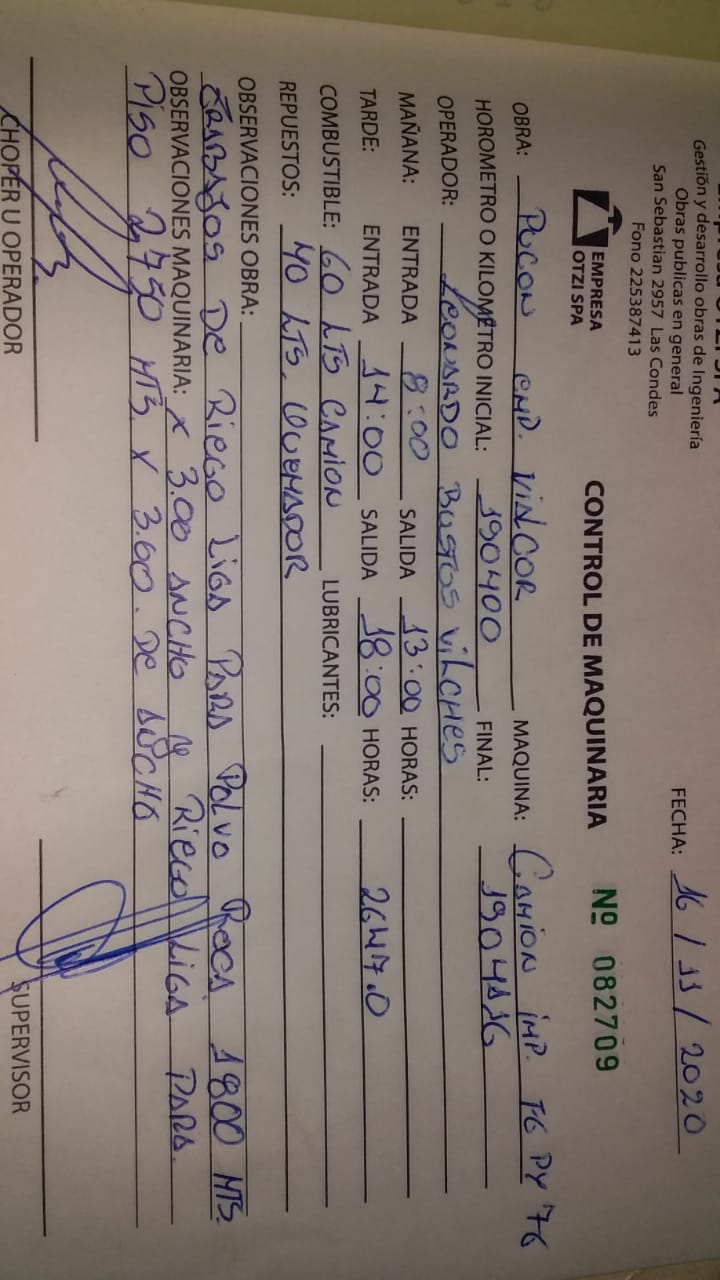 Empresa OTZI SPA
Gestión y desarrollo obras de Ingeniería
Obras publicas en general
San Sebastian 2957 Las Condes
Fono 225387413
FECHA: 16 / 11 / 2020
EMPRESA
OTZI SPA
CONTROL DE MAQUINARIA
Nº 082709
OBRA: PUCON EMP. VIALCOR MAQUINA: CAMION IMP. FG PY 76
HOROMETRO O KILOMETRO INICIAL: 190400 FINAL:
OPERADOR: LEONARDO BUSTOS VILCHES
MAÑANA: ENTRADA 8:00 SALIDA 13:00 HORAS:
TARDE: ENTRADA 14:00 SALIDA 18:00 HORAS: 2647.0
COMBUSTIBLE: 60 LTS CAMION LUBRICANTES:
REPUESTOS: 40 LTS. QUEMADOR
OBSERVACIONES OBRA:
TRABAJOS DE RIEGO LIGA PARA POLVO ROCA 1800 MTS.
OBSERVACIONES MAQUINARIA: x 3.00 ANCHO y RIEGO LIGA PARA.
PISO 2,750 MTS. x 3.60. DE ANCHO
CHOPER U OPERADOR
SUPERVISOR